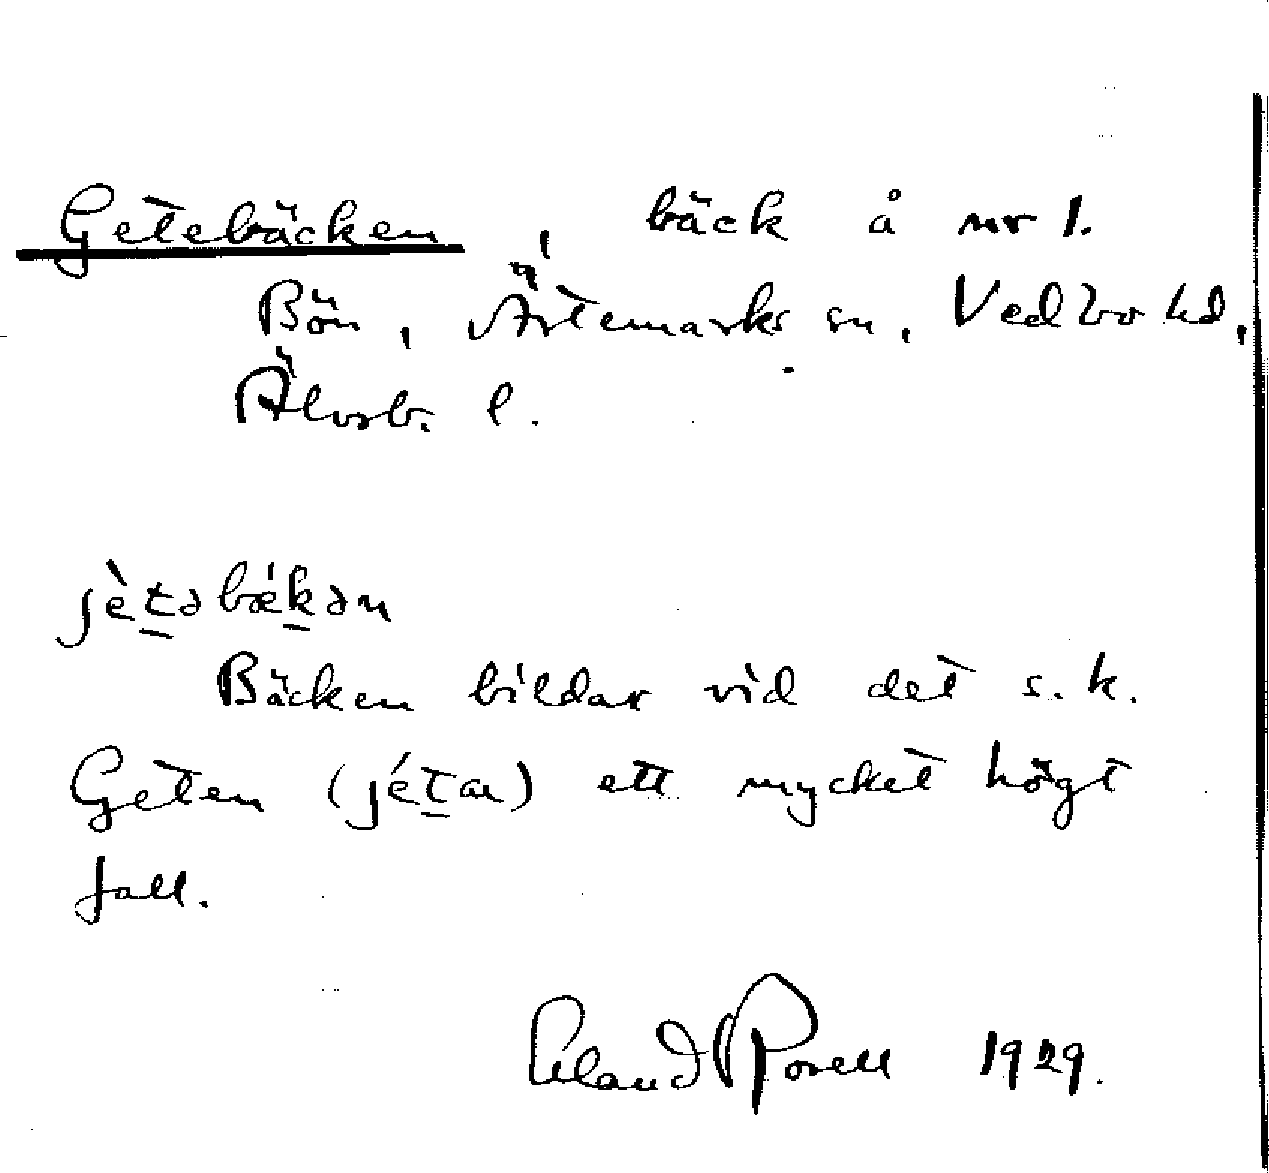 Getebäcken, bäck å nr 1.
Bön, Ärtemarks sn, Vedbo hd,
Älvsb. l.
jè̱təbǽḵən
Bäcken bildar vid det s.k.
Geten (jéṯən) ett mycket högt
fall.
1929.